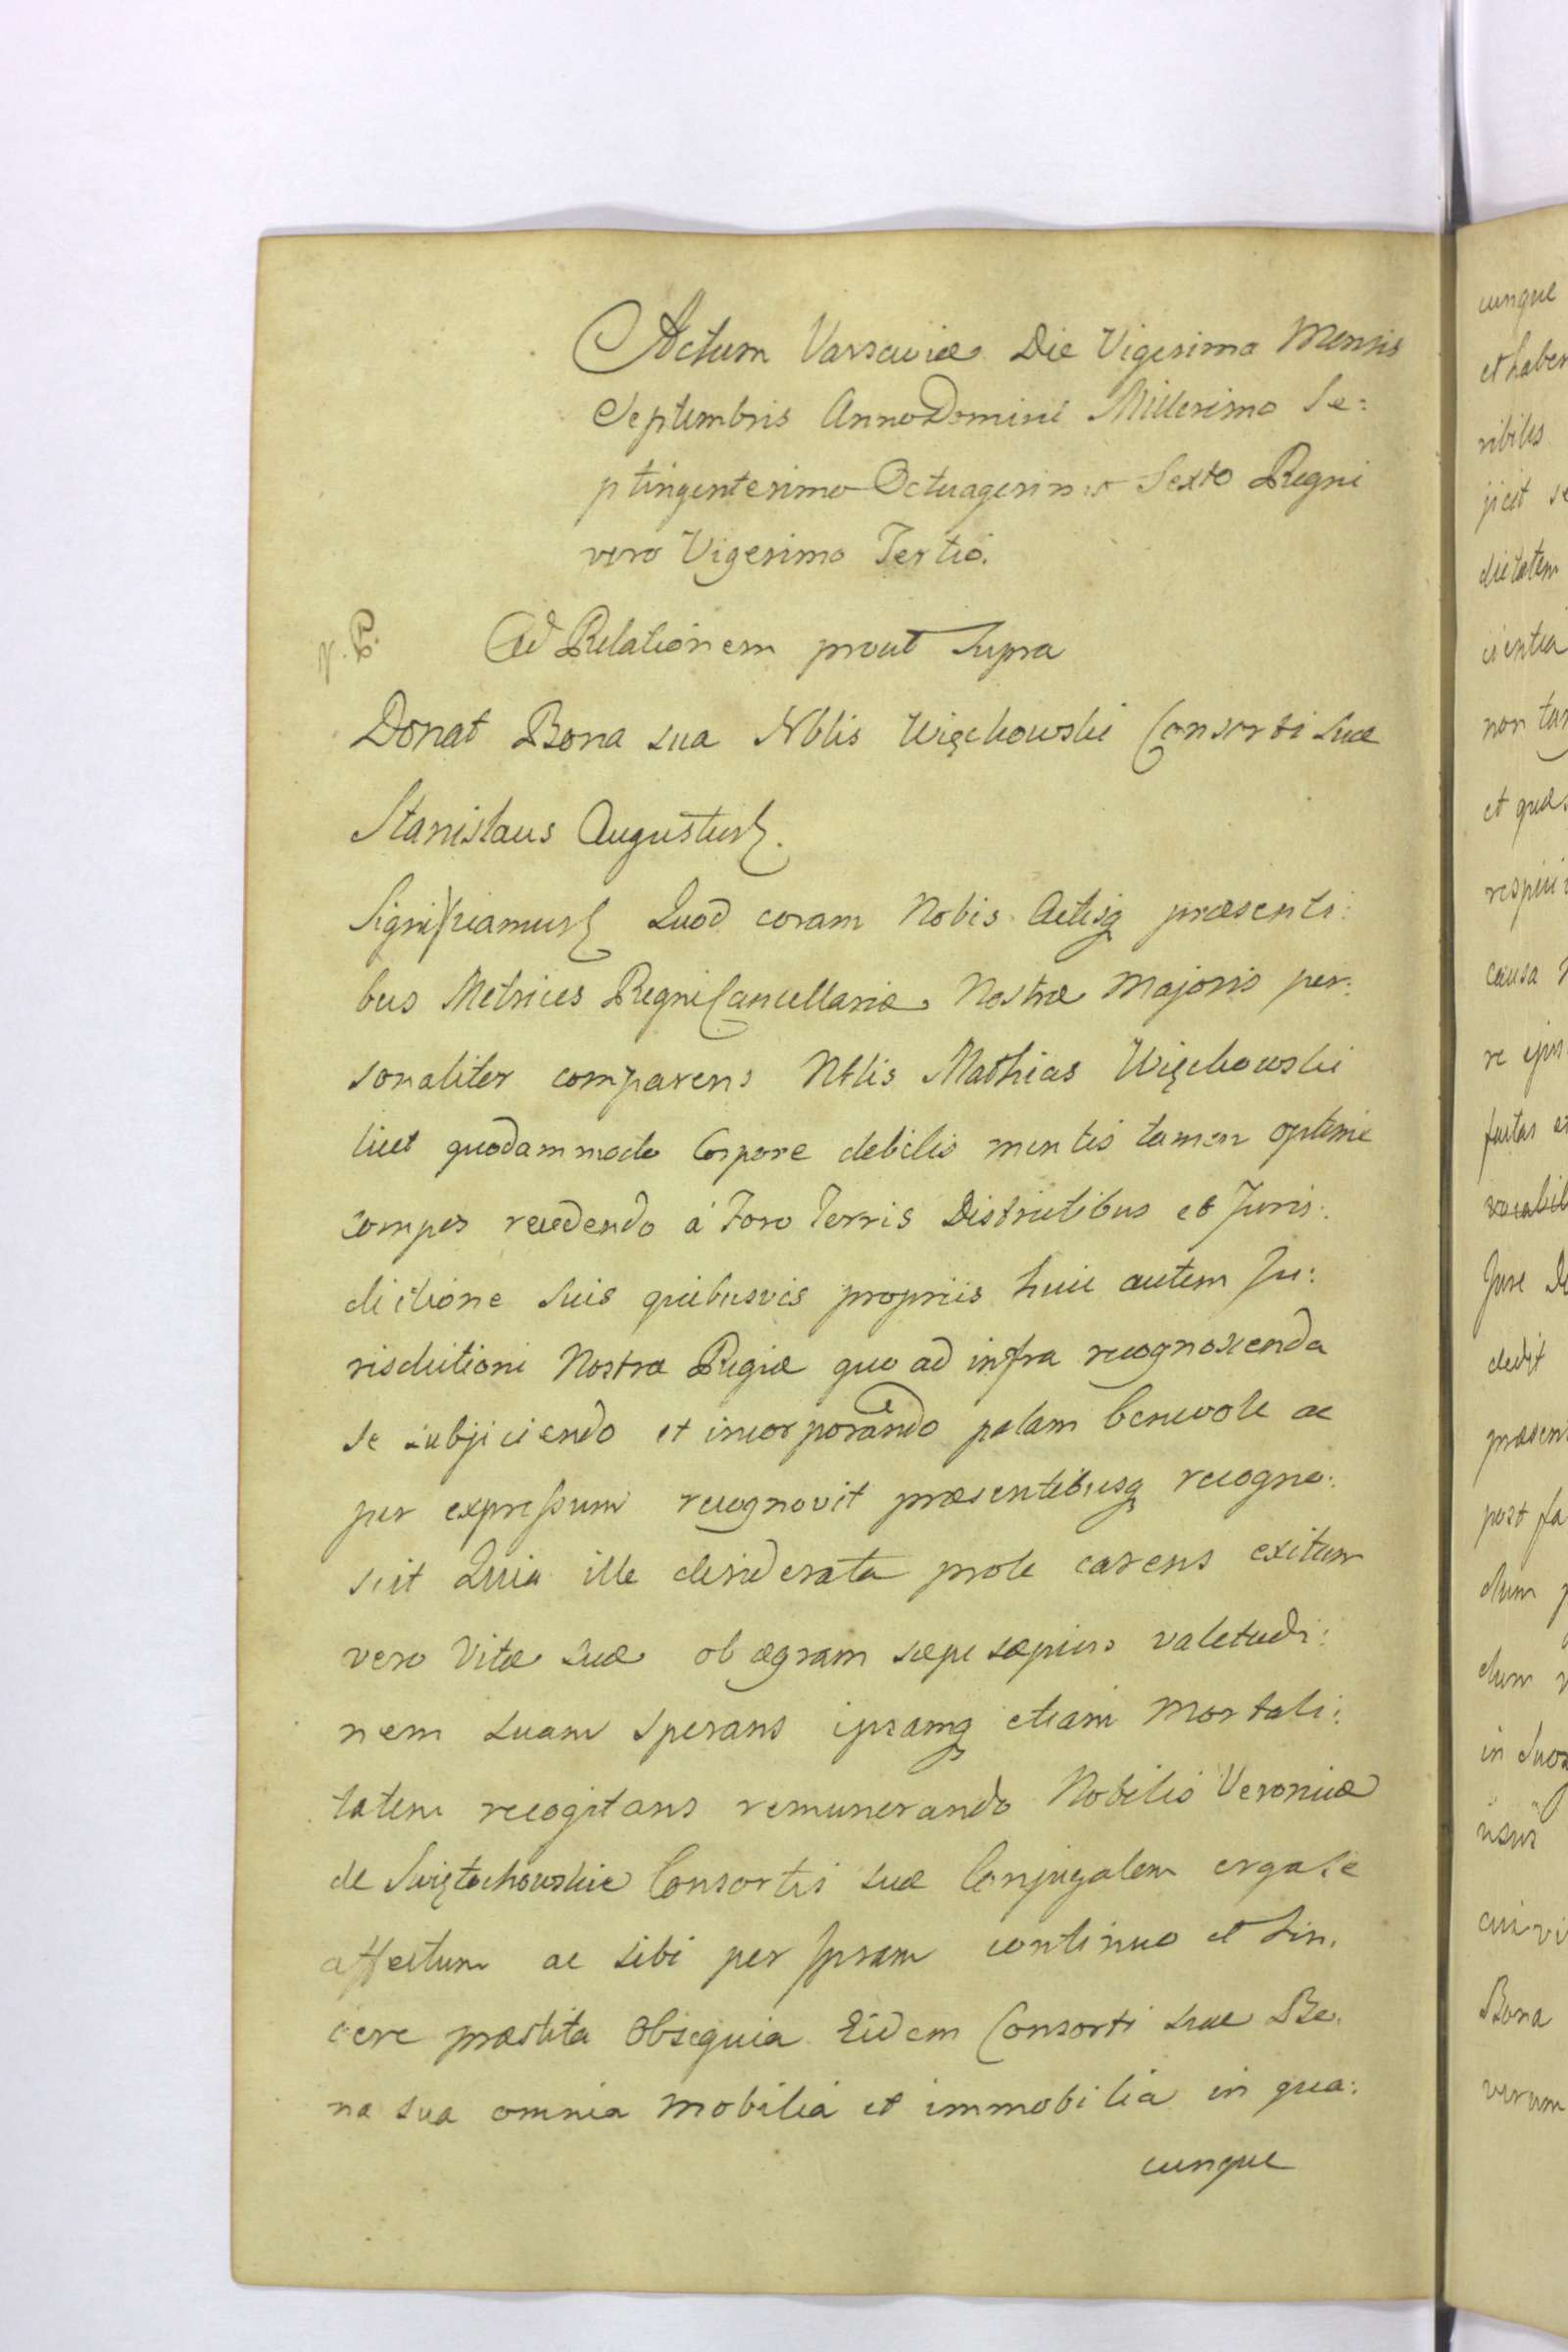 Actum Varsaviæ Die Vigesima Mensis
Septembris Anno Domini Millesimo Se:
ptingentesimo Octuagesimo Sexto Regni
vero Vigesimo Tertio.
N. P.
Ad Relationem prout Supra
Donat Bona sua Nblis Więckowski Consorti suæ
Stanislaus Augustus
Significamus Quod coram Nobis Actisq præsenti:
bus Metrices Regni Cancellariæ Nostræ Majoris per:
sonaliter comparens Nblis Mathias Więckowski
licet quodammodo Corpore debilis mentis tamen optime
compos recedendo á Foro Terris Districtibus et Juris:
dictione suis quibusvis propriis huic autem Ju:
risdictioni Nostræ Regiæ quo ad infra recognoscenda
se subjiciendo et incorporando palam benevole ac
per expressum recognovit præsentibusq recogno:
scit Quia ille desiderata prole carens exitum
vero Vitæ suæ ob ægram sæpe sæpius valetudi:
nem suam sperans ipsamq etiam Mortali:
tatem recogitans remunerando Nobilis Veronicæ
de Swiętochowskie Consortis suæ Conjugalem erga se
affectum ac sibi per Ipsam continuo et Sin.
cere præstita Obsequia Eidem Consorti suæ Bo.
na sua omnia Mobilia et immobilia in qua:
cunque
cunque
et haben
ribiles
jicit se
dictatem
cientia
non tan
et quæs
respici
causa
re ejus
factas
Jure
dedit
præsen
post fa
dum
dum
in suos
usus
cui vi
Bona
verum